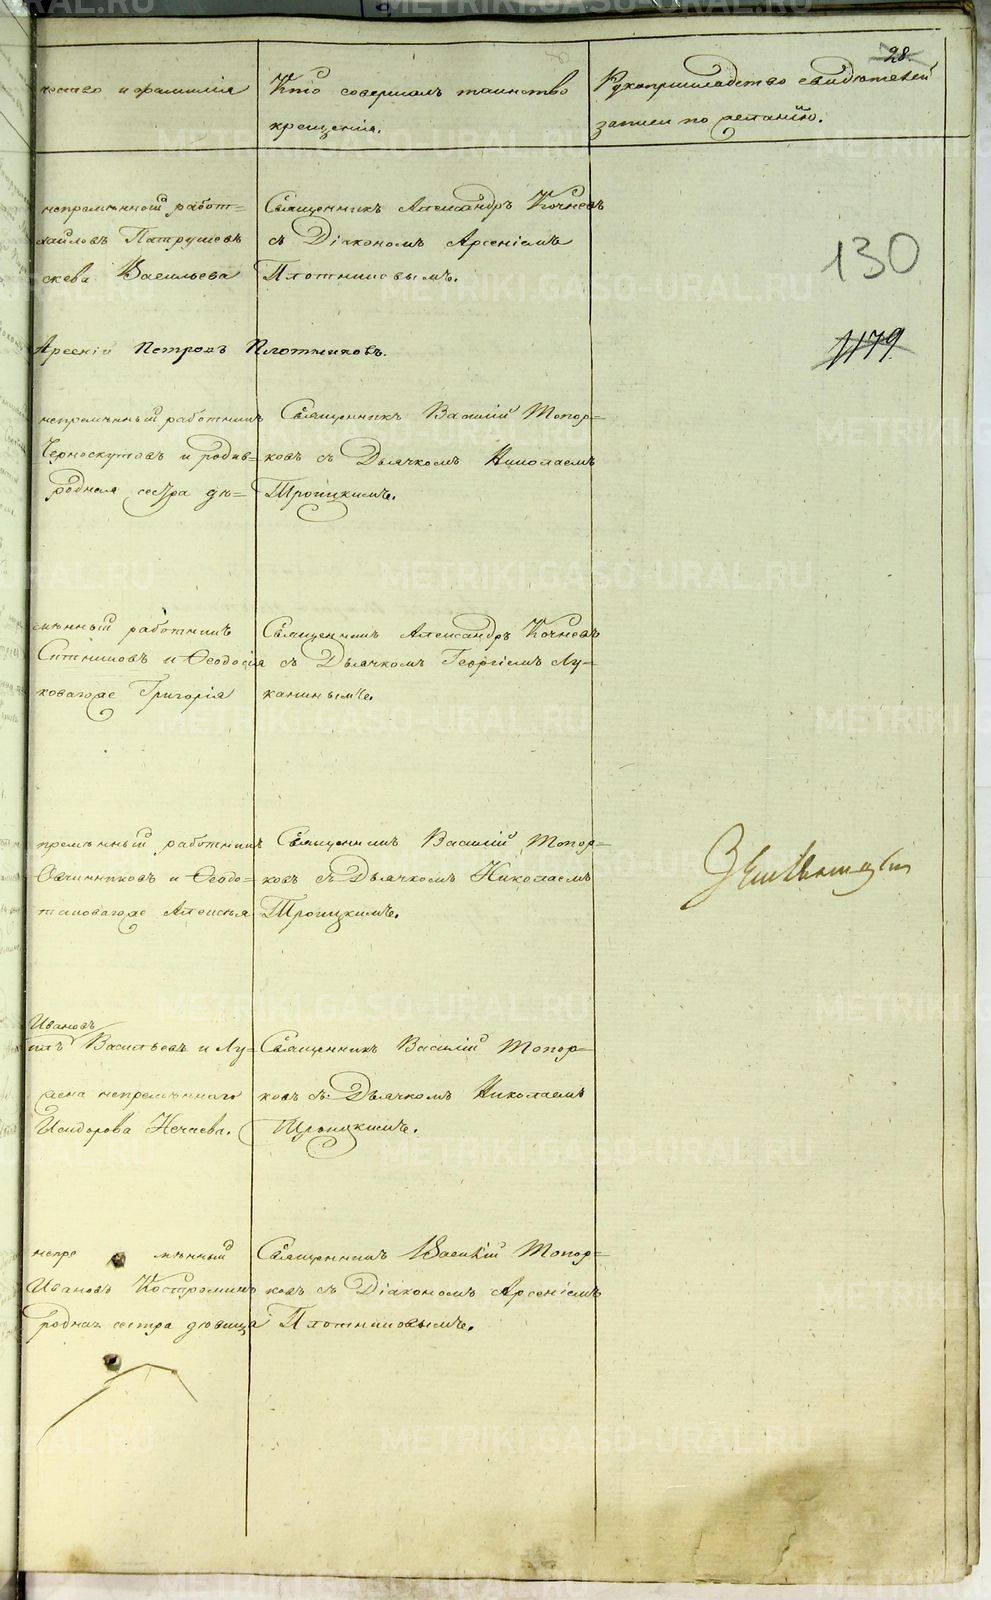 28.
чество и фамилія
Кто совершалъ таинство
крещенія.
Рукоприкладство свидѣтелей
записи по желанію.
непремѣнной работ=
хайловъ Патрушевъ
скева Васильева
Священникъ Александръ Кочневъ
съ Діакономъ Арсеніемъ
Плотниковымъ.
130
1179
Арсеній Петровъ Плотниковъ.
непремѣнный работникъ
Черноскутовъ и родив=
родная сестра дѣ=
Священникъ Василій Топор=
ковъ съ Дьячкомъ Николаемъ
Троицкимъ.
мѣнный работникъ
Ситниковъ и Ѳеодосія
коваго же Григорія
Священникъ Александръ Кочневъ
съ Дьячкомъ Георгіемъ Лу=
каниным же.
премѣнный работникъ
Овчинниковъ и Ѳеодо=
таковаго же Алексѣя
Священникъ Василій Топор=
ковъ съ Дьячкомъ Николаемъ
Троицкимъ.
Ивановъ
Васильевъ и Лу=
жена непремѣннаго
Исидорова Нечаева.
Священникъ Василій Топор=
ковъ съ Дьячкомъ Николаемъ
Троицкимъ.
непре мѣнный
Ивановъ Костроминъ
родная сестра дѣвица
Священникъ Василій Топор=
ковъ съ Діакономъ Арсеніемъ
Плотниковымъ.
METRIKI.GASO-URAL.RU